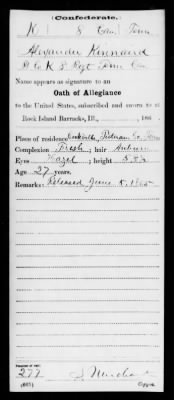 Confederate.
K | 8 Cav. | Tenn
Alexander Kinnaird
Co K 8 Regt Tenn Cav
Name appears as signature to an
Oath of Allegiance
to the United States, subscribed and sworn to at
Rock Island Barracks, Ill., 186
Place of residence Cookville, Putnam Co, Tenn
Complexion Fresh; hair Auburn
Eyes Hazel; height 5.8¼
Age 27 years.
Remarks: Released June 5, 1865
Number of roll:
277
(661)
Copyist.